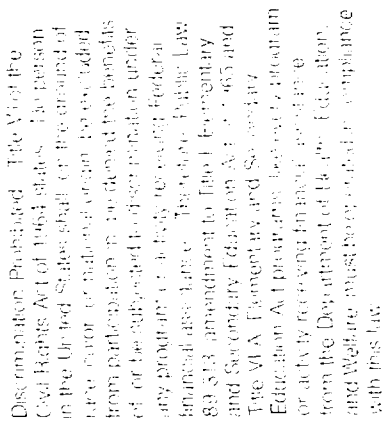 Discrimination Prohibited Title VI of the
Civil Rights Act of 1964 states No person
in the United States shall on the ground of
race color or national origin be excluded
from participation in be denied the benefits
of or be subjected to discrimination under
any program or activity receiving Federal
financial assistance Therefore Public Law
89 313 amendment to Title I Elementary
and Secondary Education Act 65 and
Title VI A Elementary and Secondary
Education Act programs like every program
or activity receiving financial assistance
from the Department of Health Education
and Welfare must be operated in compliance
with this law